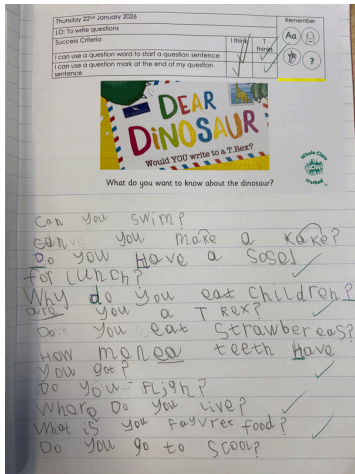 Thursday 22nd January 2026
Remember
LO: To write questions
Success Criteria
I think
T thinks
I can use a question word to start a question sentence
I can use a question mark at the end of my question sentence
Aa
?
DEAR
DINOSAUR
Would YOU write to a T.Rex?
Whole Class
NOW
Marked
What do you want to know about the dinosaur?
Can you swim?
can you make a kake?
Do you Have a Sosej
for Lunch?
Why do you eat children?
are you a T Rex?
Do you eat Strawbereas?
HOW menea teeth Have
you got?
Do you Fligh?
Where Do you Live?
What is you Fayvret food?
Do you go to Scool?